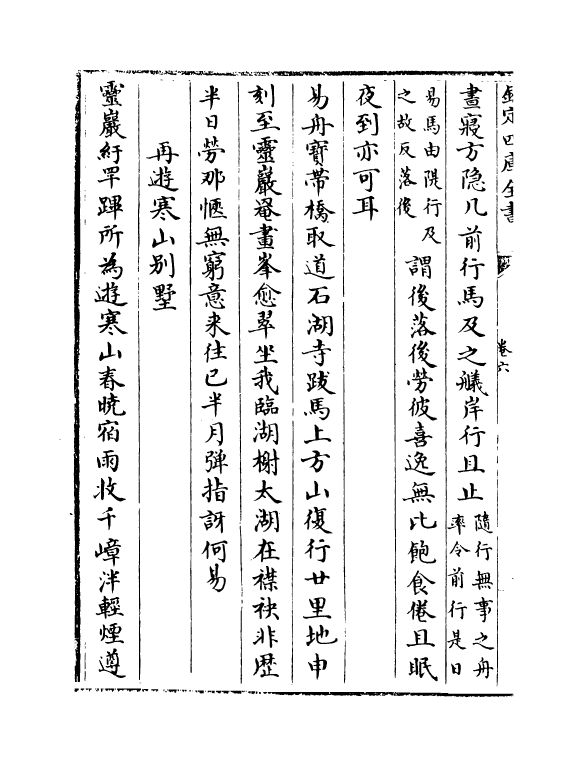 欽定四庫全書
卷六
晝寢方隐几前行馬及之艤岸行且止隨行無事之舟率令前行是日
易馬由陸行及之故反落後謂後落後勞彼喜逸無比飽食倦且眠
夜到亦可耳
易舟寶帶橋取道石湖寺跋馬上方山復行廿里地申
刻至靈巖巖畫峯愈翠坐我臨湖榭太湖在襟袂非歴
半日勞那愜無窮意来往已半月彈指訝何易
再遊寒山别墅
靈巖紆罕蹕所為遊寒山春曉宿雨收千嶂泮輕煙遵